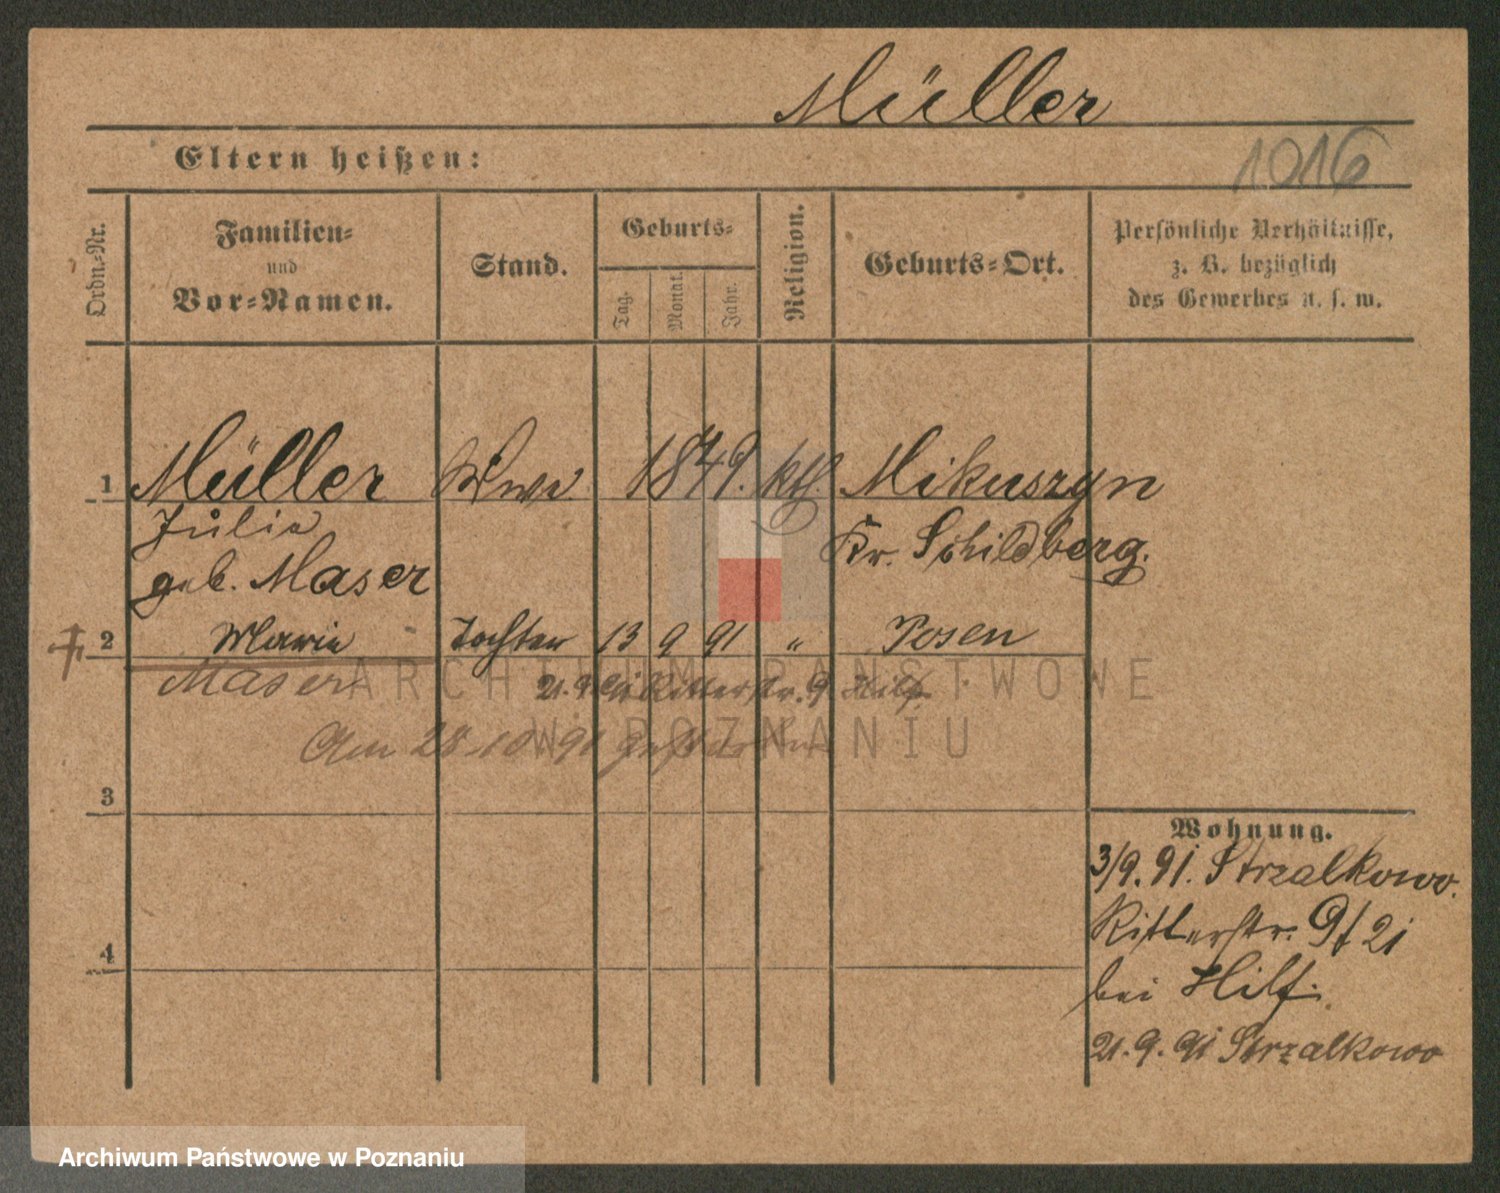 Müller
Eltern heißen:
1016
Ordn.-Nr.
Familien-
und
Vor-Namen.
Stand.
Geburts-
Tag.
Monat.
Jahr.
Religion.
Geburts-Ort.
Persönliche Verhältnisse,
z. B. bezüglich
des Gewerbes u. s. w.
1 Müller Wwe 1849. kth. Mikuszyn
Julia Kr. Schildberg.
geb. Maser
2 Marie Tochter 13 9 91 " Posen
Maser 21.9.91 Ritterstr. 9 Hilf.
Am 28.10.91 gestorben
3
Wohnung.
3/9. 91. Strzalkowo.
Ritterstr. 9 21
bei Hilf.
4
21. 9. 91 Strzalkowo
ARCHIWUM PAŃSTWOWE
W POZNANIU
Archiwum Państwowe w Poznaniu